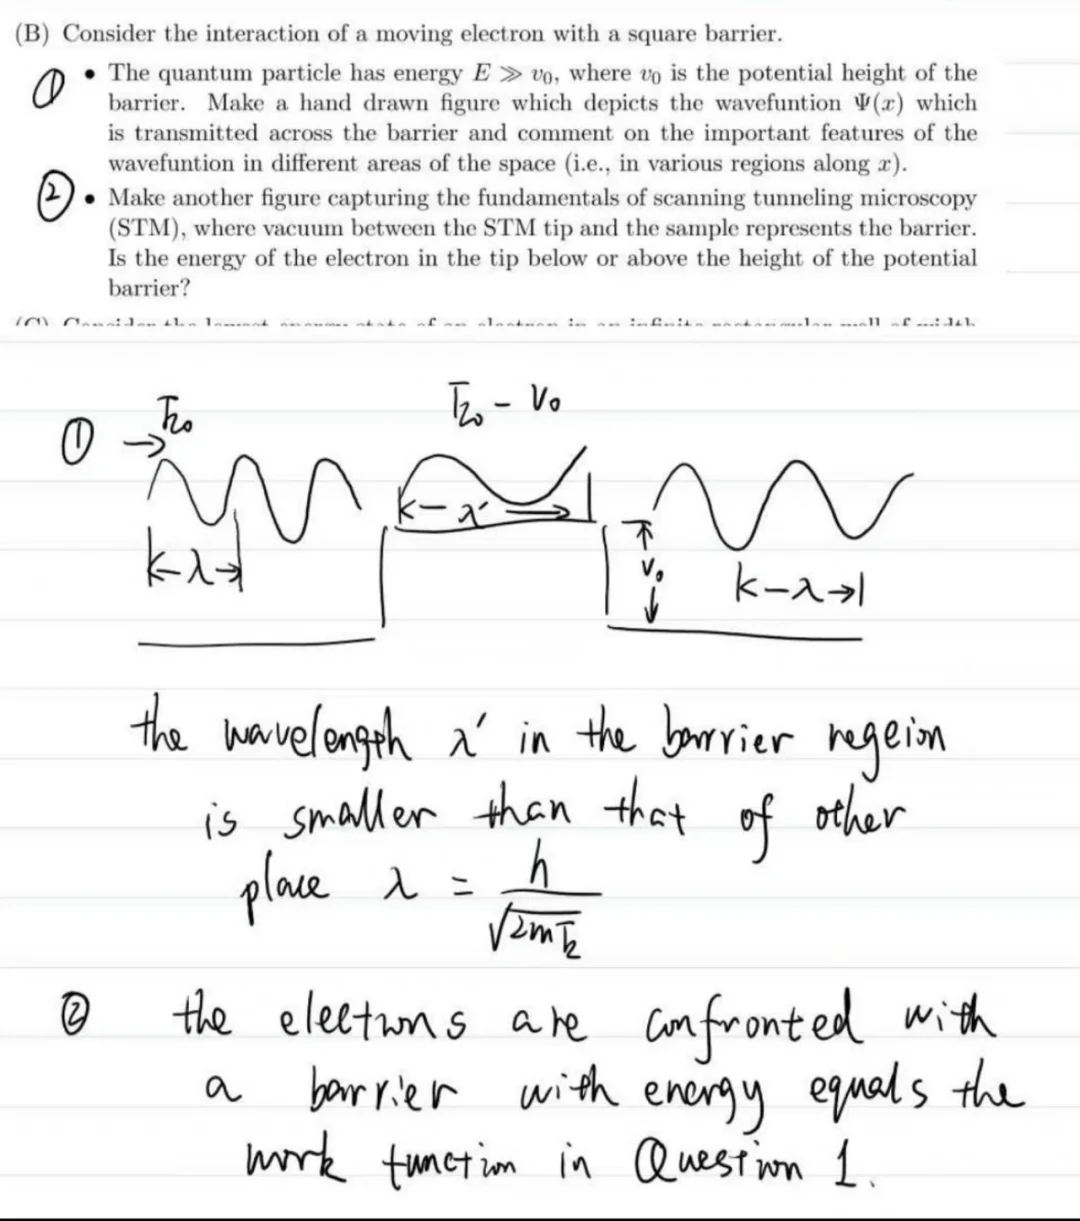 (B) Consider the interaction of a moving electron with a square barrier.
① • The quantum particle has energy E ≫ v₀, where v₀ is the potential height of the
barrier. Make a hand drawn figure which depicts the wavefuntion Ψ(x) which
is transmitted across the barrier and comment on the important features of the
wavefuntion in different areas of the space (i.e., in various regions along x).
② • Make another figure capturing the fundamentals of scanning tunneling microscopy
(STM), where vacuum between the STM tip and the sample represents the barrier.
Is the energy of the electron in the tip below or above the height of the potential
barrier?
① → Eₖ₀
Eₖ₀ - V₀
k-λ→|
k-λ'→|
V₀
k-λ→|
the wavelength λ' in the barrier regeion
is smaller than that of other
place λ = h/√2mEₖ
② the electrons are confronted with
a barrier with energy equals the
work function in Question 1.